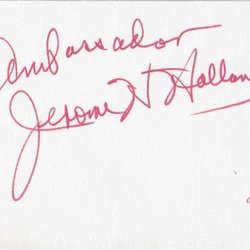 Ambassador
Jerome H Hollan